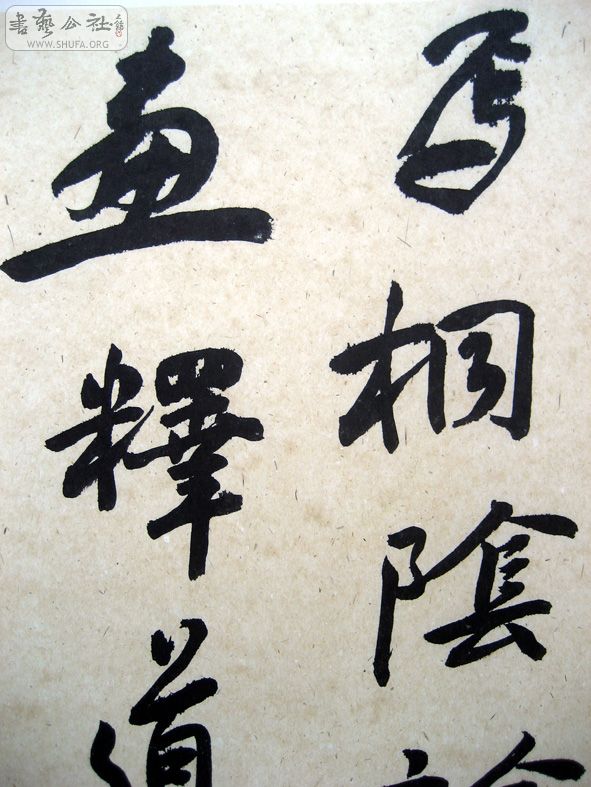 書藝公社
WWW.SHUFA.ORG
桐陰
畫釋道